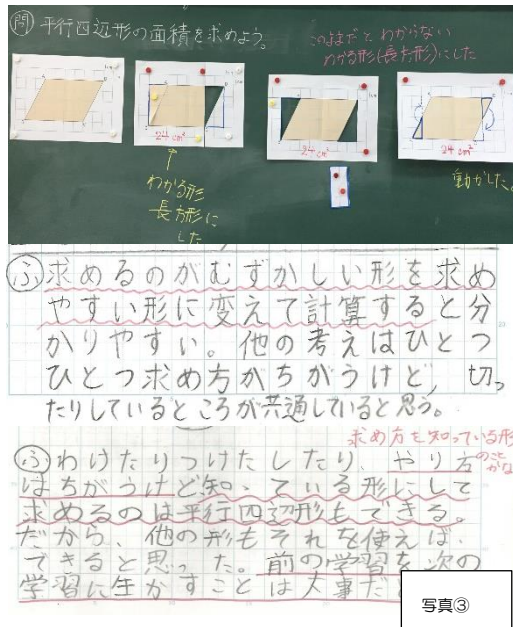 問 平行四辺形の面積を求めよう。
このままだとわからない
わかる形(長方形)にした
24cm²
24cm²
24cm²
わかる形
長方形に
した
動かした。
ふ 求めるのがむずかしい形を求め
やすい形に変えて計算すると分
かりやすい。他の考えはひとつ
ひとつ求め方がちがうけど、切っ
たりしているところが共通していると思う。
求め方を知っている形
のこと
かな
ふ わけたりつけたしたり、やり方
はちがうけど知っている形にして
求めるのは平行四辺形もできる。
だから、他の形もそれを使えば、
できると思った。前の学習を次の
学習に生かすことは大事だ
写真③